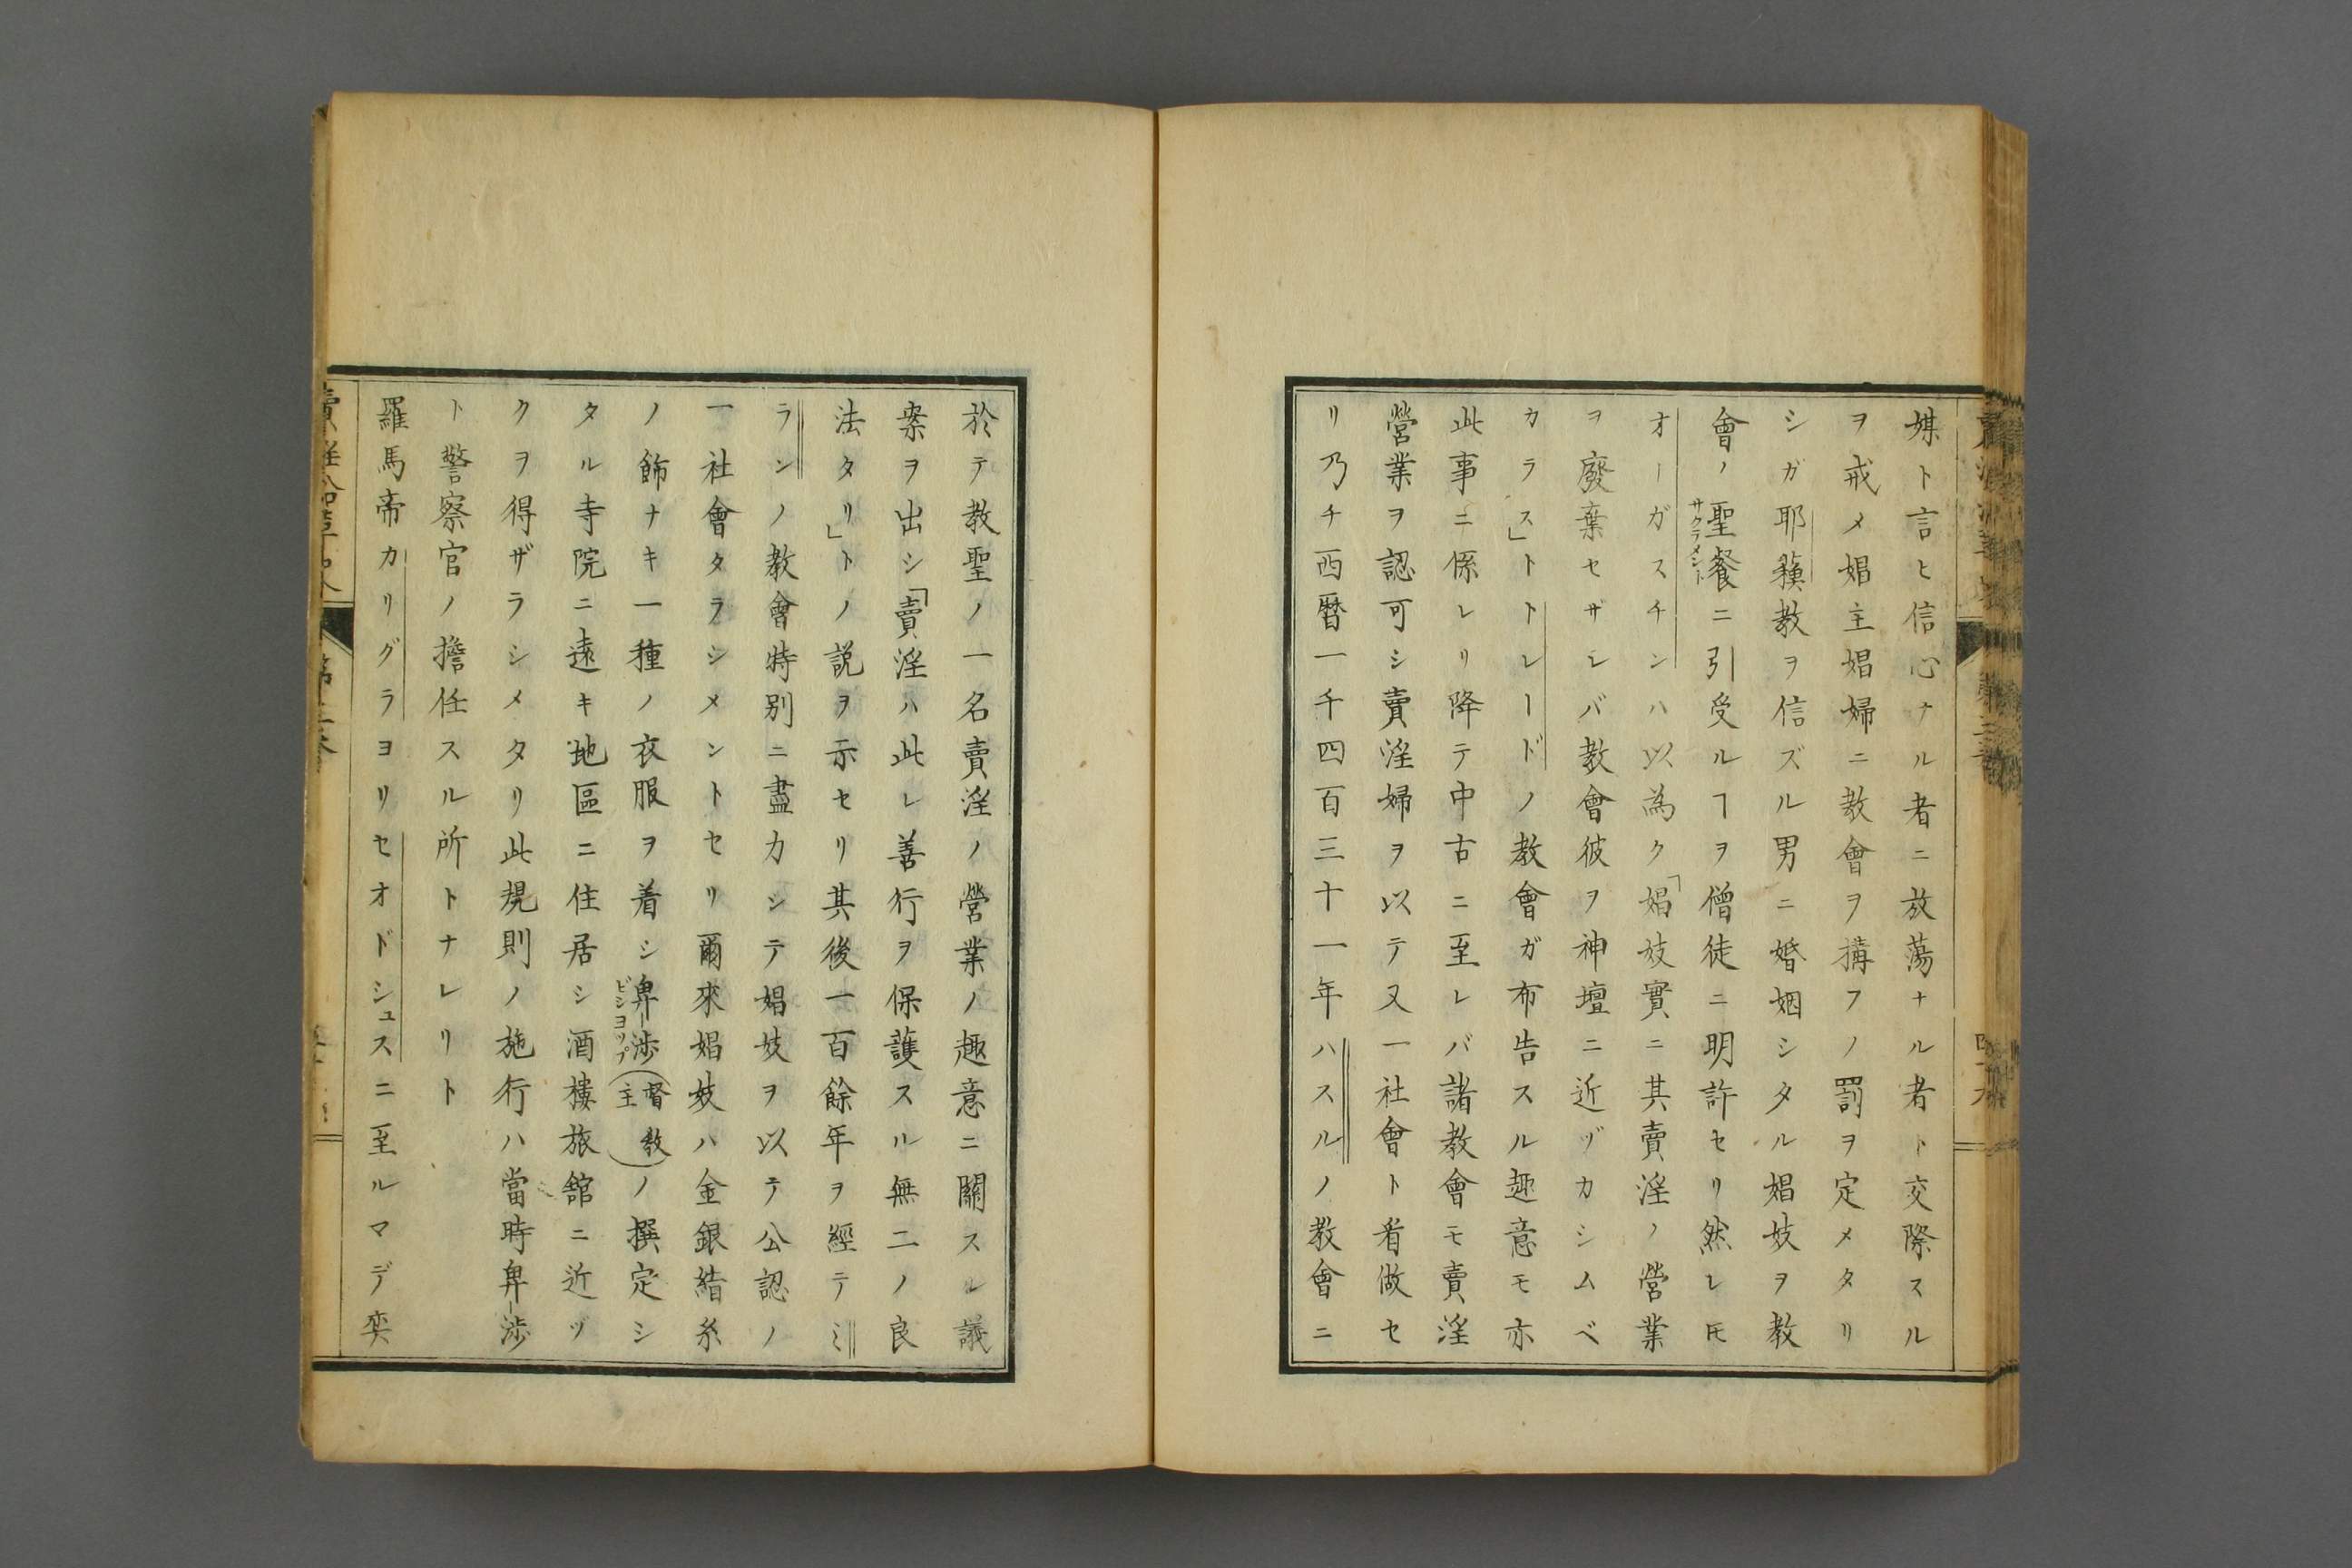 媒ト言ヒ信心ナル者ニ放蕩ナル者ト交際スル
ヲ戒メ娼主娼婦ニ教會ヲ搆フノ罰ヲ定メタリ
シガ耶蘇教ヲ信ズル男ニ婚姻シタル娼妓ヲ教
會ノ聖餐ニ引受ルヿヲ僧徒ニ明許セリ然レ𪜈
サクラメント
オーガスチンハ以為ク「娼妓實ニ其賣淫ノ營業
ヲ廢棄セザレバ教會彼ヲ神壇ニ近ヅカシムベ
カラス」トトレードノ教會ガ布告スル趣意モ亦
此事ニ係レリ降テ中古ニ至レバ諸教會モ賣淫
營業ヲ認可シ賣淫婦ヲ以テ又一社會ト看做セ
リ乃チ西暦一千四百三十一年ハスルノ教會ニ
於テ教聖ノ一名賣淫ノ營業ノ趣意ニ關スル議
案ヲ出シ「賣淫ハ此レ善行ヲ保護スル無二ノ良
法タリ」トノ説ヲ示セリ其後一百餘年ヲ經テミ
ランノ教會特別ニ盡力シテ娼妓ヲ以テ公認ノ
一社會タラシメントセリ爾來娼妓ハ金銀結糸
ノ飾ナキ一種ノ衣服ヲ着シ卑-渉(督教主)ノ撰定シ
ビショップ
タル寺院ニ遠キ地區ニ住居シ酒樓旅舘ニ近ヅ
クヲ得ザラシメタリ此規則ノ施行ハ當時卑-渉
ト警察官ノ擔任スル所トナレリト
羅馬帝カリグラヨリセオドシュスニ至ルマデ奕